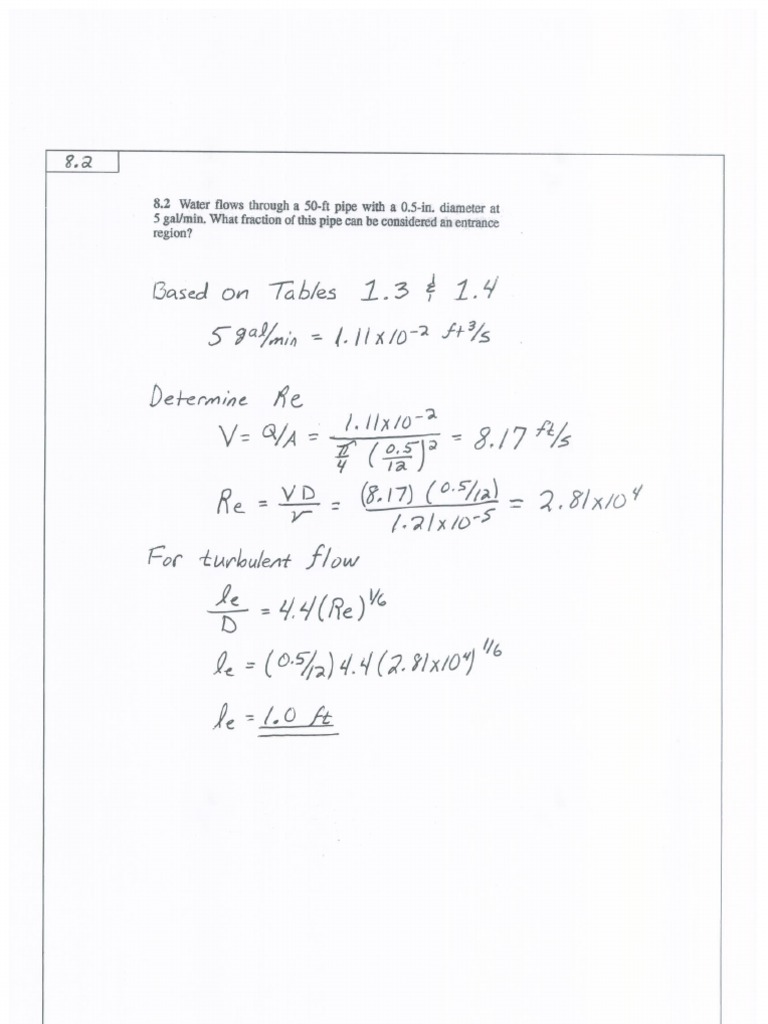 8.2
8.2 Water flows through a 50-ft pipe with a 0.5-in. diameter at
5 gal/min. What fraction of this pipe can be considered an entrance
region?
Based on Tables 1.3 & 1.4
5 gal/min = 1.11x10⁻² ft³/s
Determine Re
V = Q/A = 1.11x10⁻² / (π/4 (0.5/12)²) = 8.17 ft/s
Re = VD/ν = (8.17)(0.5/12) / 1.21x10⁻⁵ = 2.81x10⁴
For turbulent flow
le/D = 4.4(Re)^1/6
le = (0.5/12)4.4(2.81x10⁴)^1/6
le = 1.0 ft